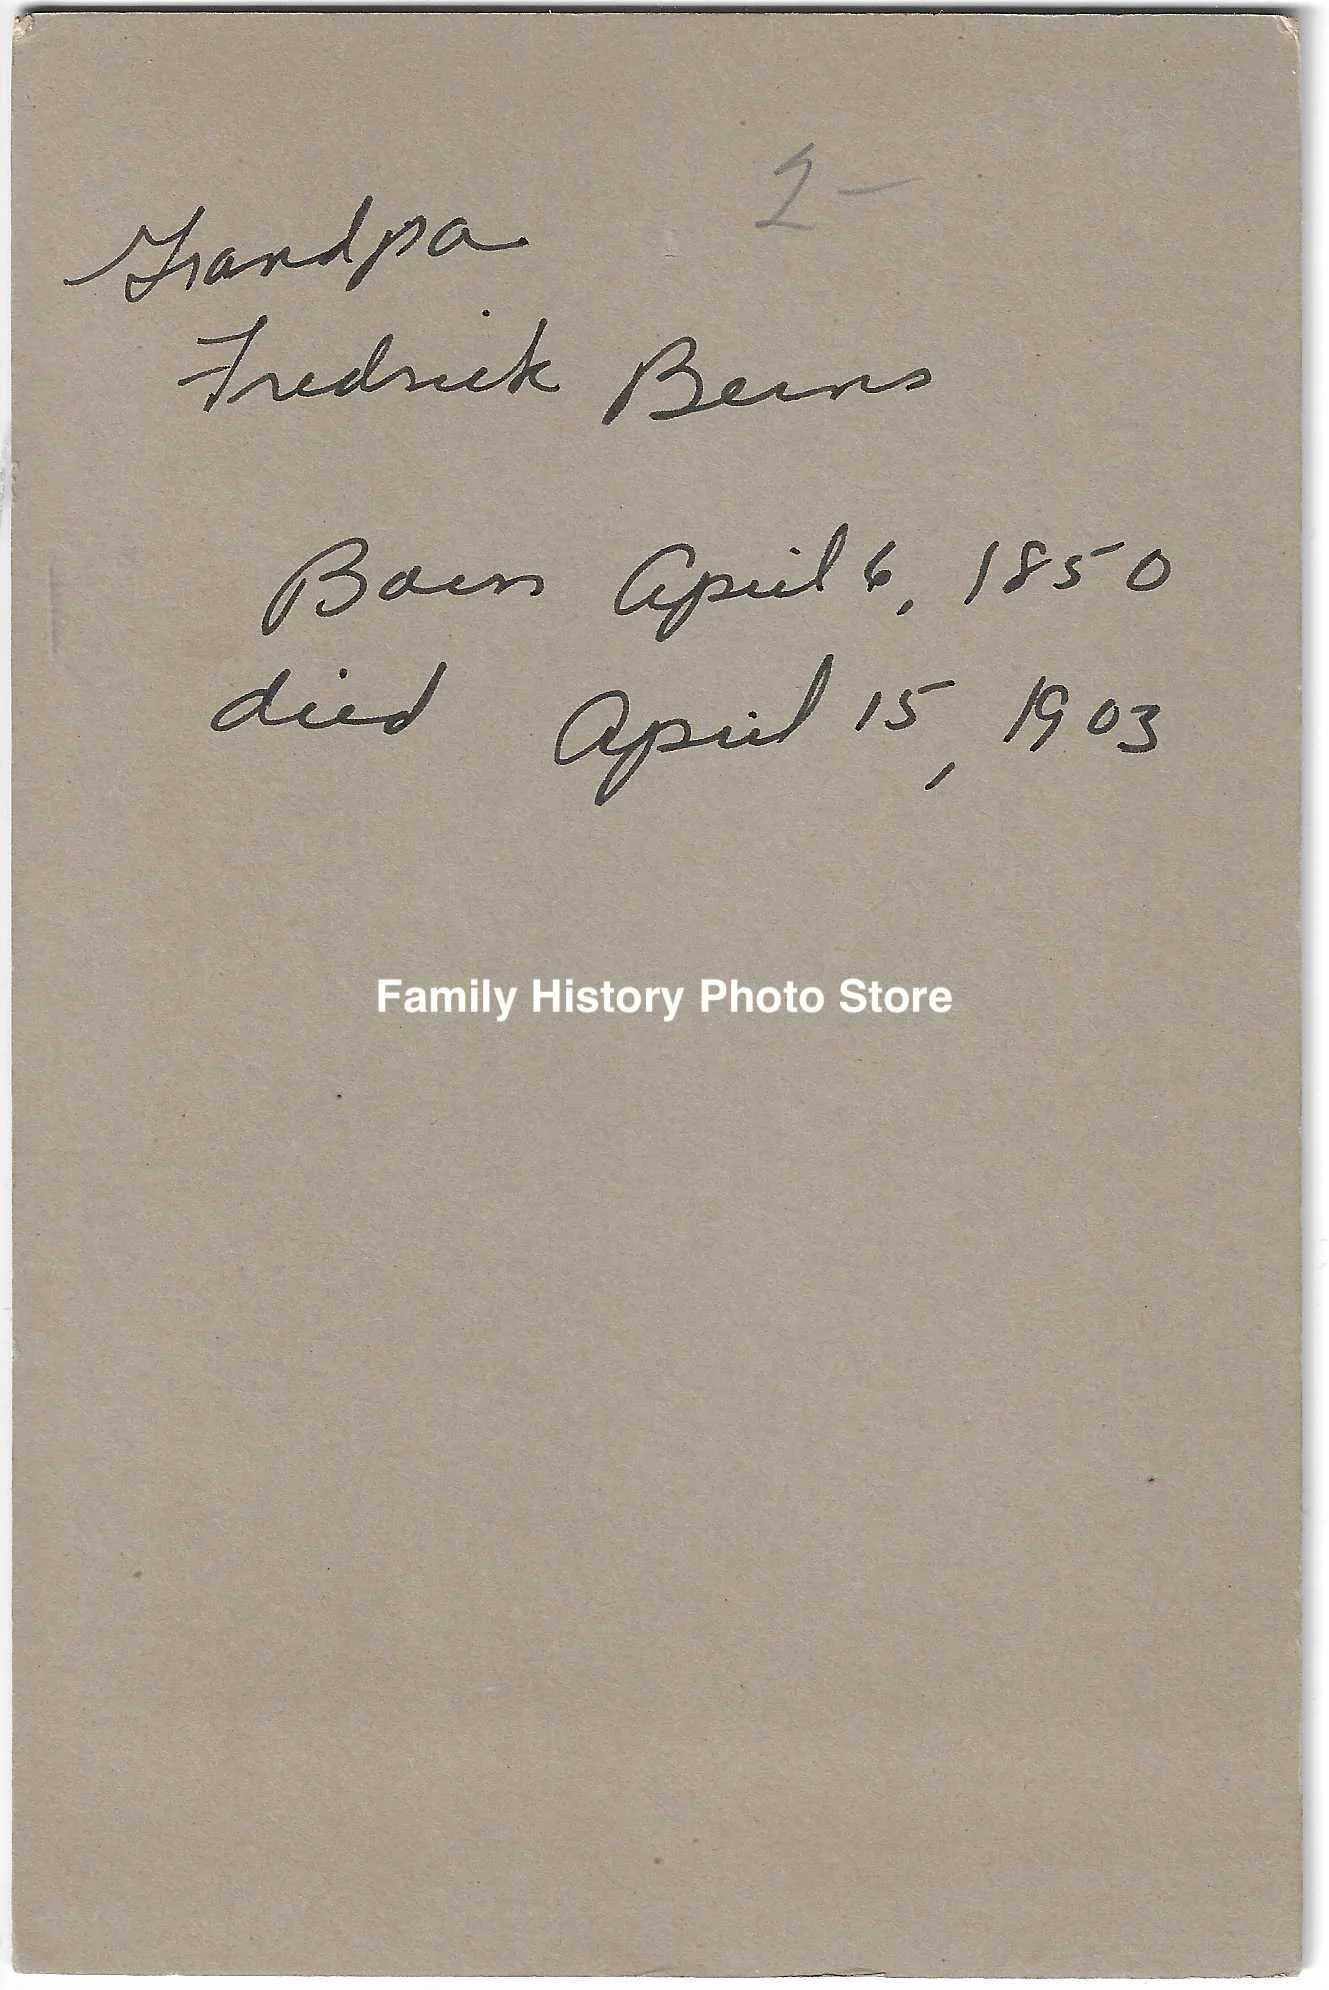 2-
Grandpa
Fredrick Berns
Born April 6, 1850
died April 15, 1903
Family History Photo Store